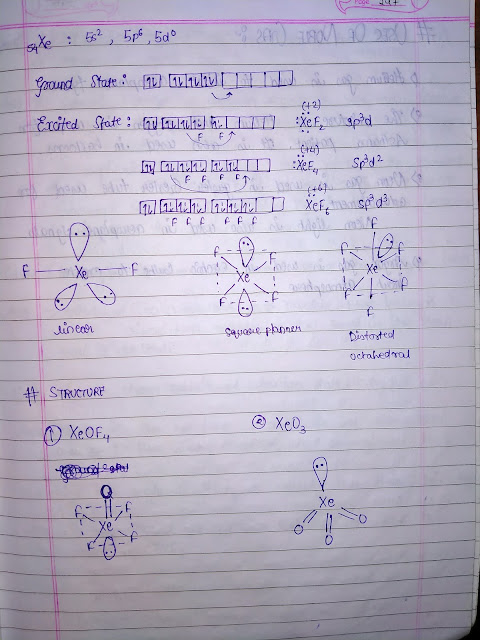 Page 297
54Xe : 5s², 5p⁶, 5d⁰
Ground State :
Excited State :
F F
(+2)
:XeF₂ sp³d
F F F F
(+4)
:XeF₄ sp³d²
F F F F F F
(+6)
XeF₆ sp³d³
F Xe F
linear
F F
Xe
F F
Square planner
F
F F
Xe
F F
F
Distorted
octahedral
# STRUCTURE
① XeOF₄
② XeO₃
O
F F
Xe
F F
Xe
O O O